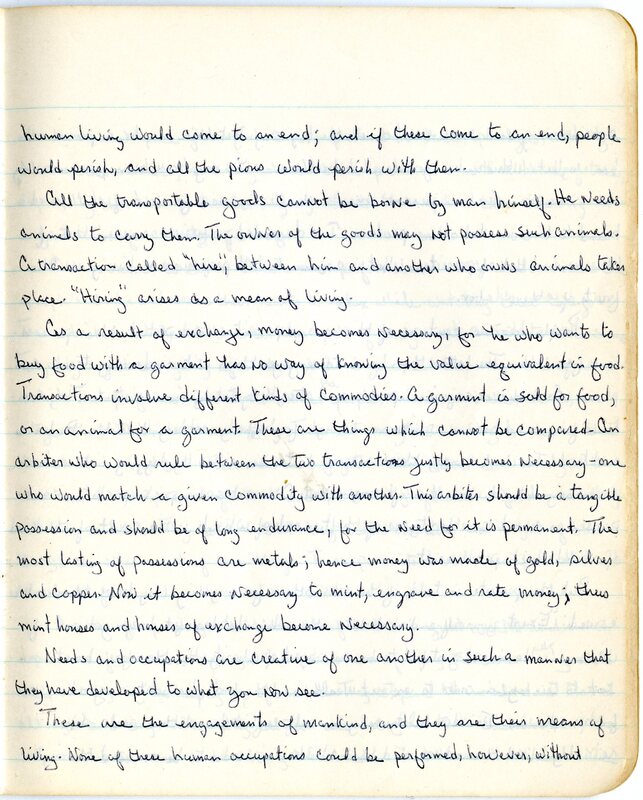 human living would come to an end; and if these come to an end, people
would perish, and all the pious would perish with them.
All the transportable goods cannot be borne by man himself. He needs
animals to carry them. The owner of the goods may not possess such animals.
A transaction called "hire", between him and another who owns animals takes
place. "Hiring" arises as a mean of living.
As a result of exchange, money becomes necessary, for he who wants to
buy food with a garment has no way of knowing the value equivalent in food.
Transactions involve different kinds of commodies. A garment is sold for food,
or an animal for a garment. These are things which cannot be compared. An
arbiter who would rule between the two transactions justly becomes necessary - one
who would match a given commodity with another. This arbiter should be a tangible
possession and should be of long endurance, for the need for it is permanent. The
most lasting of possessions are metals; hence money was made of gold, silver
and copper. Now it becomes necessary to mint, engrave and rate money; thus
mint houses and houses of exchange become necessary.
Needs and occupations are creative of one another in such a manner that
they have developed to what you now see.
These are the engagements of mankind, and they are their means of
living. None of these human occupations could be performed, however, without